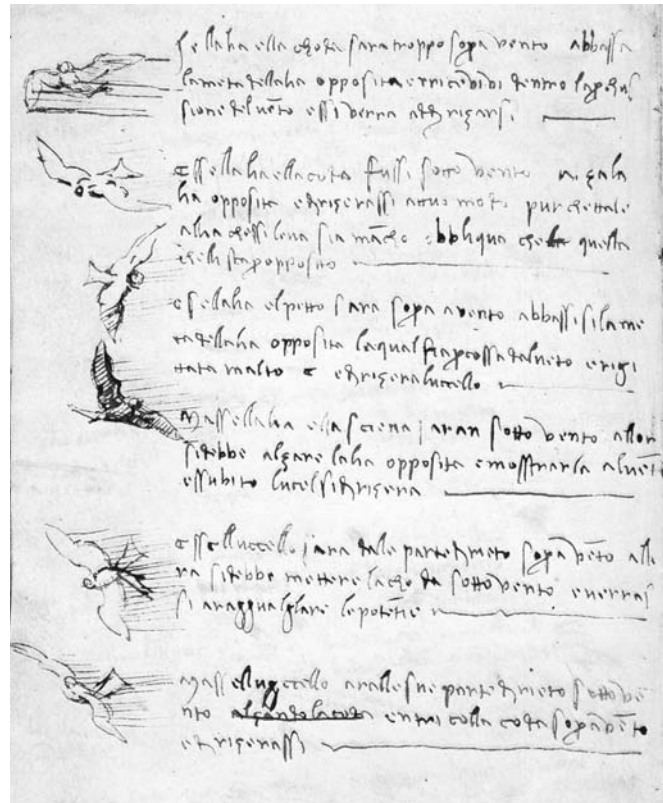 Se llalia ella choda sara troppo sopa vento abbassa
la meta dellalia opposita e di dentro la perchus
sione del vēto e ssi verra addirizarsi
E sse llalia ella coda fussi sotto vento alza la
lia opposita e dirizerassi attuo modo pur chettale
alia chessi leva sia mācho obbliqua che quella
chelli sta per opposito
E se llalia el petto sara sopa vento abbassisi la me
ta dellalia opposita laqual fia percossa dal vēto e rigi
ttata in alto e dirizera lucello
Ma sse llalia ella sciena saran sotto vento allor
si debbe alzare lalia opposita e mosstrarla al vēto
essubito lucel si dirizera
E sse lluccello sara dalle parte dirieto sopa vēto allo
ra si debbe mettere la choda sotto vento e verras
si a ragguagliare le potētie
Ma sse lluccello ara lle sue parte dirieto sotto ve
nto alzando la coda entri colla coda sopa vēto
e dirizerassi